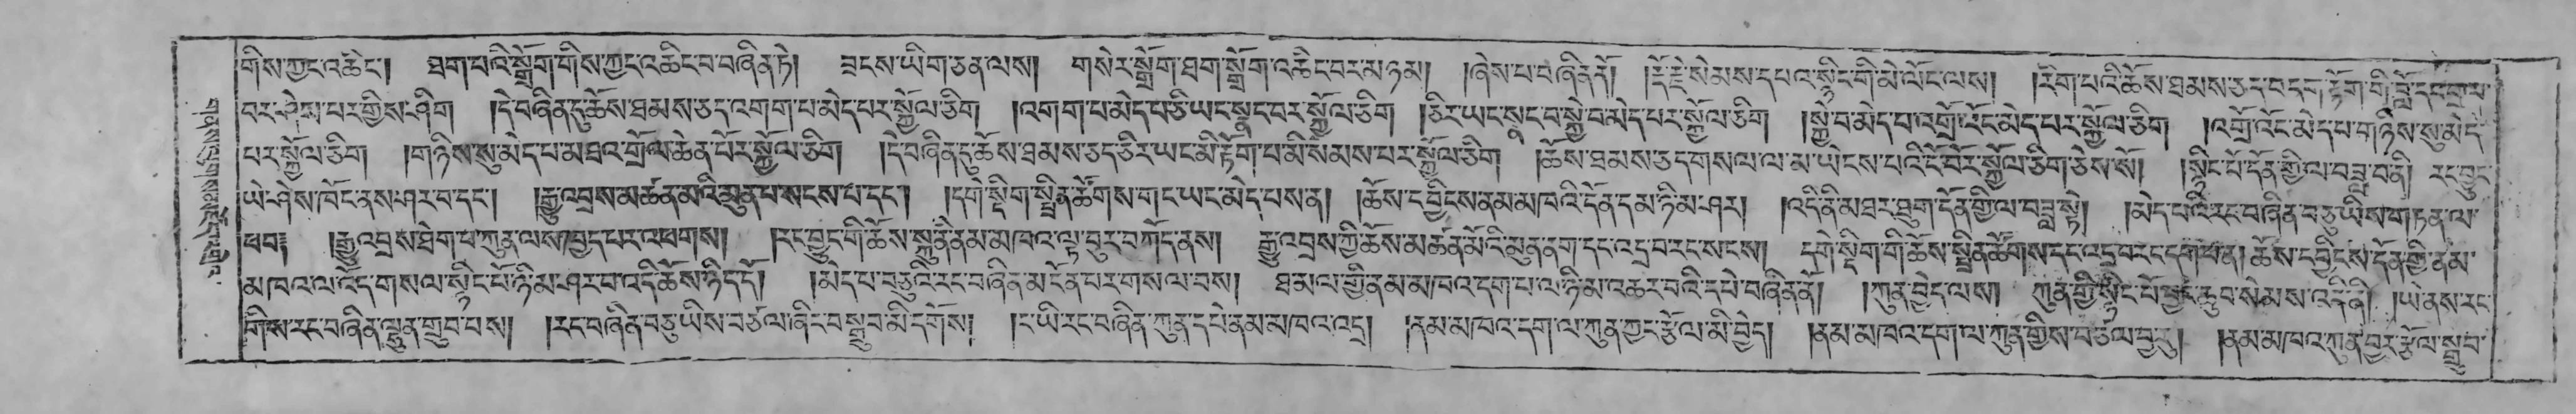 གིས་ཀྱང་འཆིང་། ཐག་པའི་སྒྲོག་གིས་ཀྱང་འཆིང་བ་བཞིན་ཏེ། ཟངས་ཡིག་ཅན་ལས། གསེར་སྒྲོག་ཐག་སྒྲོག་འཆིང་བར་མཉམ། །ཞེས་པ་བཞིན་ནོ། །རྡོ་རྗེ་སེམས་དཔའ་སྙིང་གི་མེ་ལོང་ལས། །རིག་པའི་ཆོས་ཐམས་ཅད་བདང་རྟོག་གི་བློ་དང་བྲལ་
བར་ཤེས་པར་གྱིས་ཤིག །དེ་བཞིན་དུ་ཆོས་ཐམས་ཅད་འགག་པ་མེད་པར་སྐྱོལ་ཅིག །འགག་པ་མེད་པ་ཅི་ཡང་སྣང་བར་སྐྱོལ་ཅིག །ཅིར་ཡང་སྣང་བ་སྐྱེ་བ་མེད་པར་སྐྱོལ་ཅིག །སྐྱེ་བ་མེད་པ་འགྲོ་འོང་མེད་པར་སྐྱོལ་ཅིག །འགྲོ་འོང་མེད་པ་གཉིས་སུ་མེད་
པར་སྐྱོལ་ཅིག །གཉིས་སུ་མེད་པ་མཐའ་གྲོལ་ཆེན་པོར་སྐྱོལ་ཅིག །དེ་བཞིན་དུ་ཆོས་ཐམས་ཅད་ཅིར་ཡང་མི་རྟོག་པ་མི་སེམས་པར་སྐྱོལ་ཅིག །ཆོས་ཐམས་ཅད་གསལ་ལ་མ་ཡེངས་པའི་ངོ་བོར་སྐྱོལ་ཅིག་ཅེས་སོ། །སྙིང་པོ་དོན་གྱི་ལ་བཟླ་བ་ནི། རང་བྱུང་
ཡེ་ཤེས་ཁོང་ནས་ཤར་བ་དང་། །རྒྱུ་འབྲས་མཚན་མའི་མུན་པ་སངས་པ་དང་། །དགེ་སྡིག་སྤྲིན་ཚོགས་གང་ཡང་མེད་པས་ན། །ཆོས་དབྱིངས་ནམ་མཁའི་དོན་དམ་ཉི་མ་ཤར། །འདི་ནི་མཐར་ཐུག་དོན་གྱི་ལ་བཟླ་སྟེ། །མེད་པའི་རང་བཞིན་བཅུ་ཡིས་གཏན་ལ་
ཕབ༔ །རྒྱུ་འབྲས་ཐེག་པ་ཀུན་ལས་ཁྱད་པར་འཕགས། །རང་བྱུང་གི་ཆོས་སྐུ་ནི་ནམ་མཁའ་ལྟ་བུར་བཀོད་ནས། རྒྱུ་འབྲས་ཀྱི་ཆོས་མཚན་མོའི་མུན་ནག་དང་འདྲ་བ་རང་སངས། དགེ་སྡིག་གི་ཆོས་སྤྲིན་ཚོགས་དང་འདྲ་བ་རང་དག་པ་ན། ཆོས་དབྱིངས་དོན་གྱི་ནམ་
མཁའ་ལ་འོད་གསལ་སྙིང་པོ་ཉི་མ་ཤར་བ་འདི་ཆོས་ཉིད་དོ། །མེད་པ་བཅུའི་རང་བཞིན་མངོན་པར་གསལ་བས། ཐ་མལ་གྱི་ནམ་མཁའ་དག་པ་ལ་ཉི་མ་འཆར་བའི་དཔེ་བཞིན་ནོ། །ཀུན་བྱེད་ལས། ཀུན་གྱི་སྙིང་པོ་བྱང་ཆུབ་སེམས་འདི་ནི། །ཡེ་ནས་རང་
གིས་རང་བཞིན་ལྷུན་གྲུབ་པས། །རང་བཞིན་བཅུ་ཡིས་བཙལ་ཞིང་བསྒྲུབ་མི་དགོས། །ང་ཡི་རང་བཞིན་ཀུན་དཔེ་ནམ་མཁའ་འདྲ། །ནམ་མཁའ་དག་ལ་ཀུན་ཀྱང་རྩོལ་མི་བྱེད། །ནམ་མཁའ་དག་ལ་ཀུན་གྱིས་བཙལ་བྱར། །ནམ་མཁའ་ཀུན་བྱར་རྩོལ་སྒྲུབ་